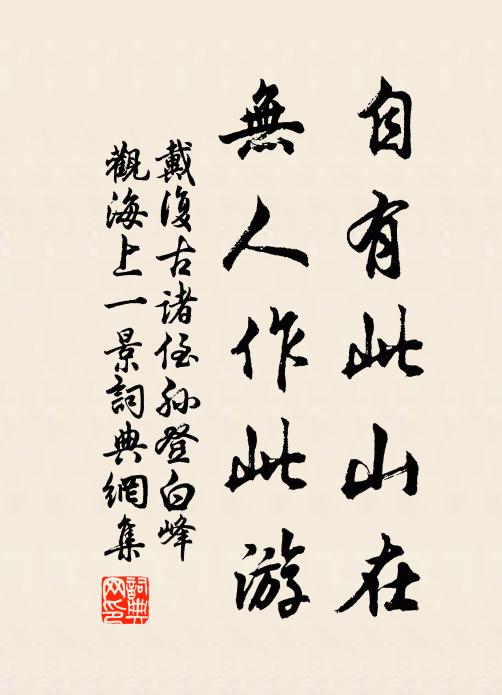 自有此山在
無人作此游
戴復古諸侄孙登白峰
觀海上一景詞典網集
詞典网印